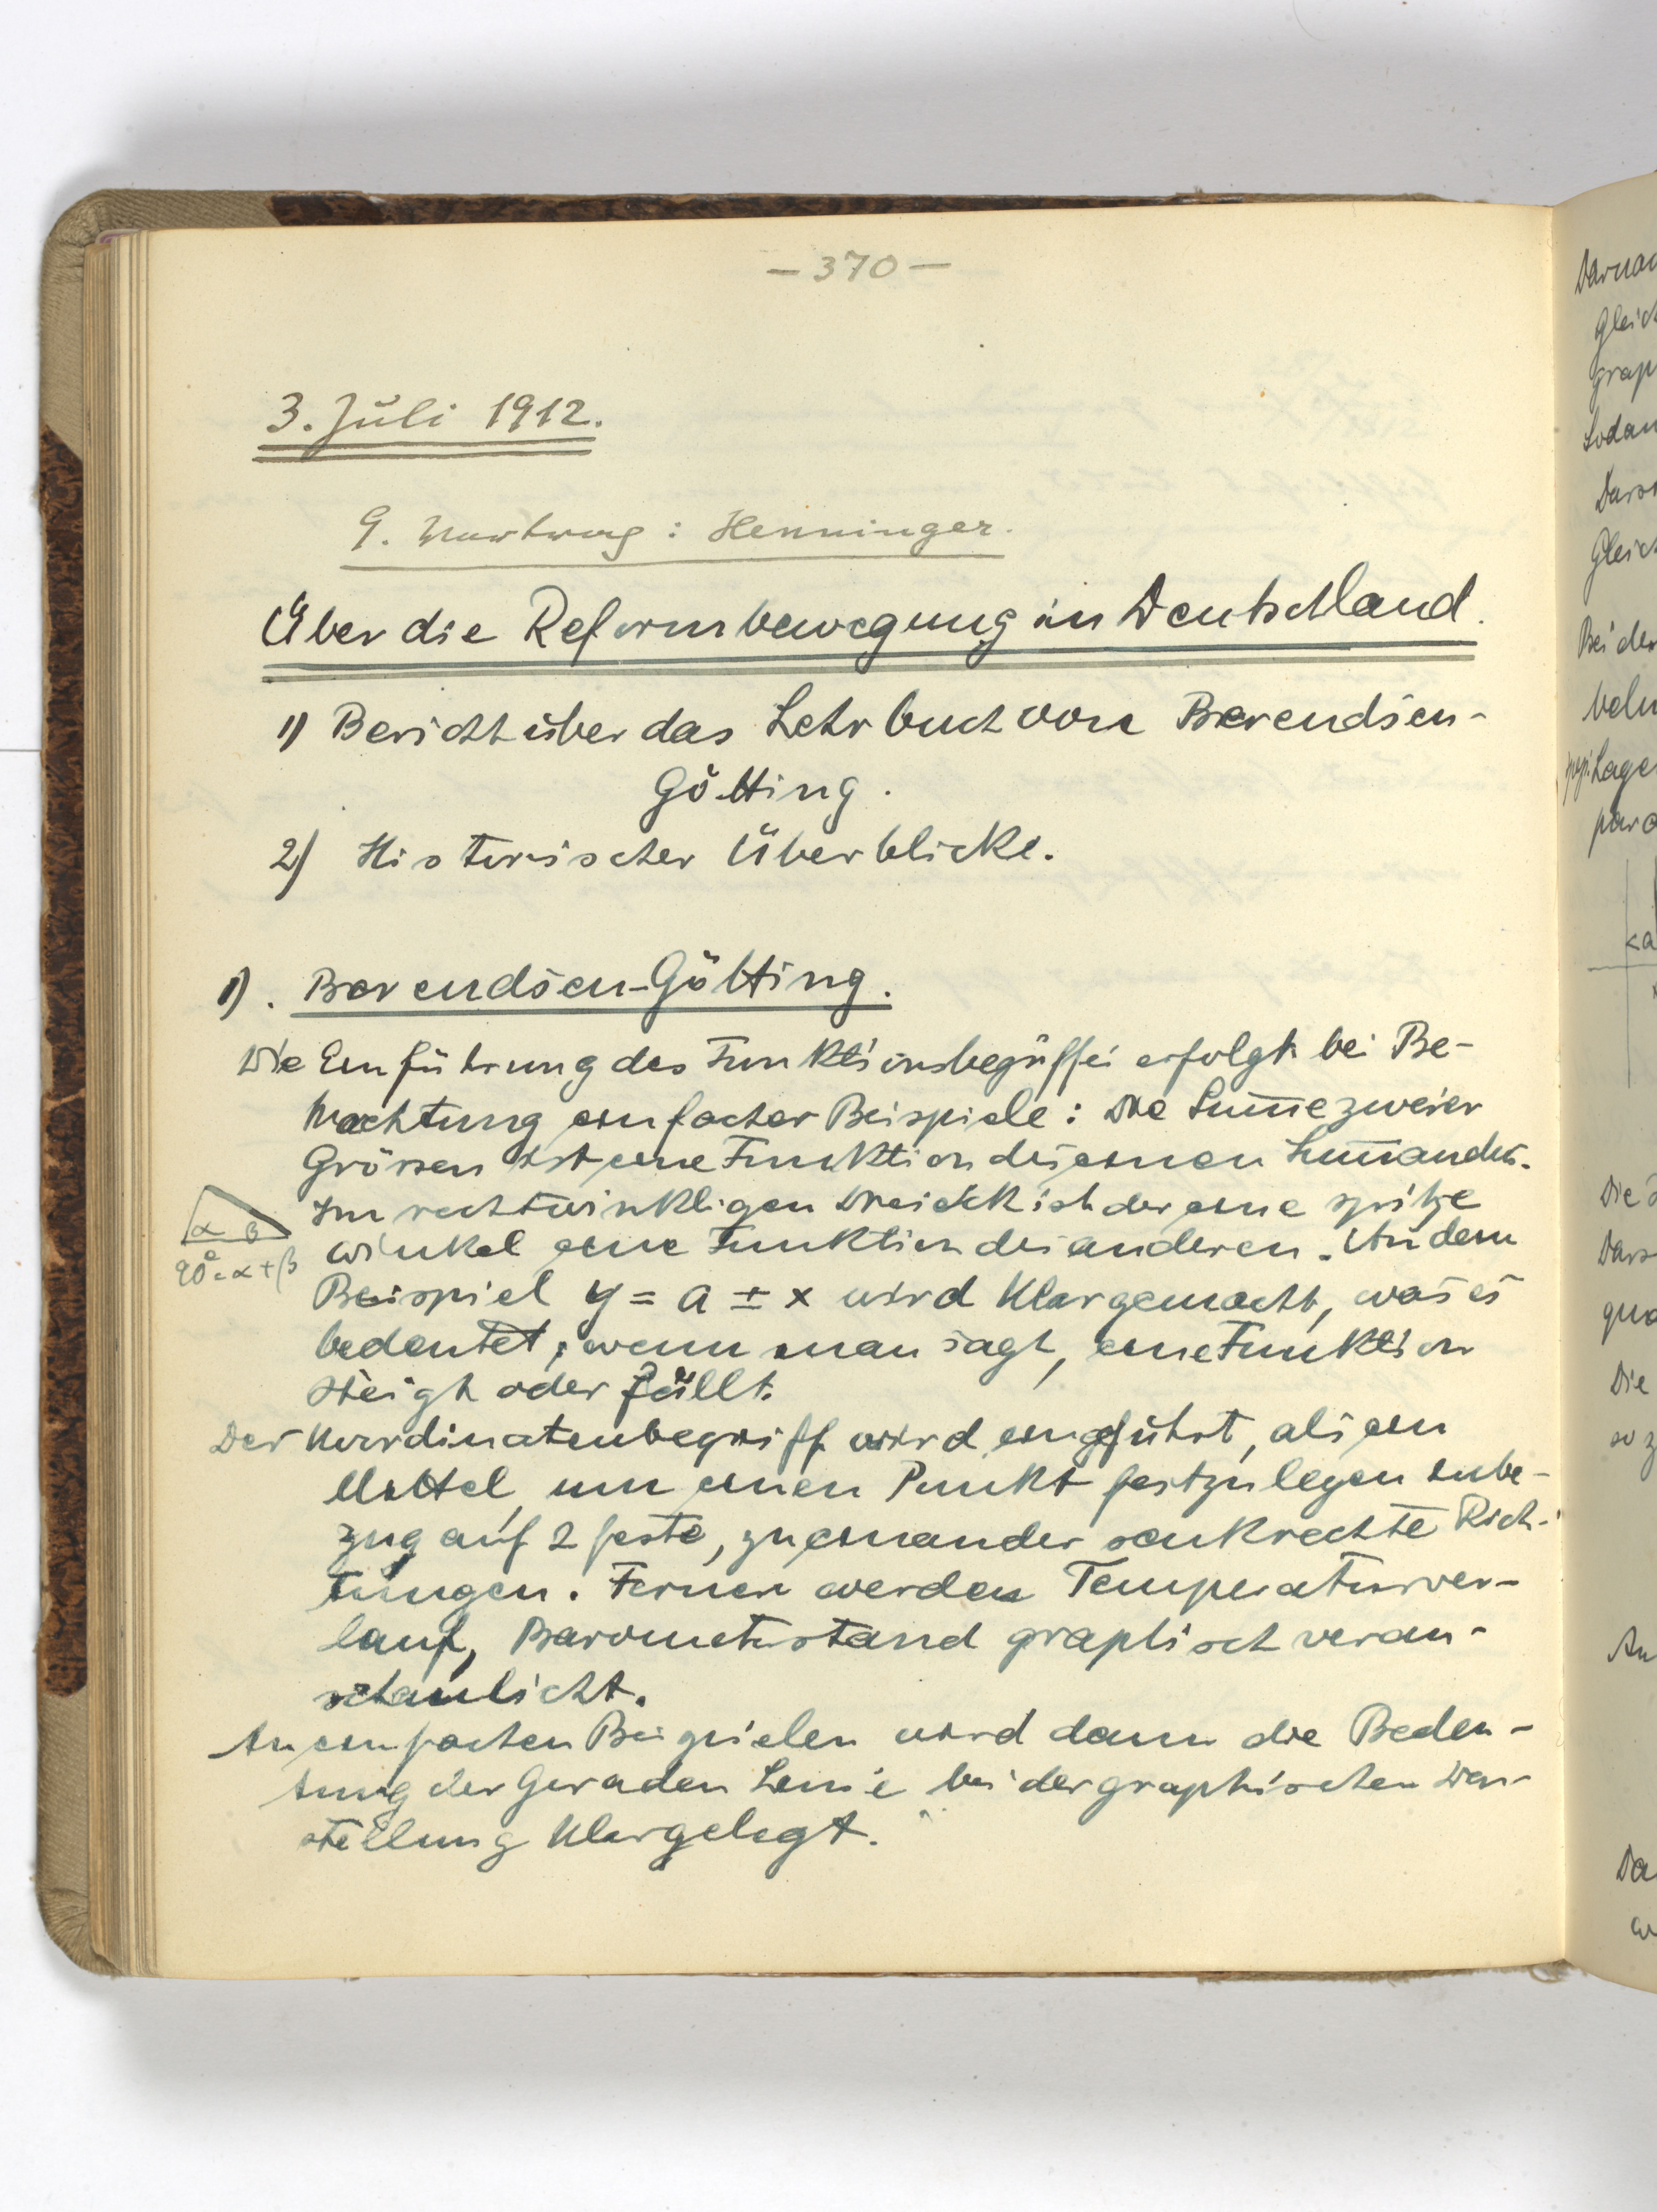 – 370 –
3. Juli 1912.
: Henninger.
Über die Reformbewegung in Deutschland.
1) Bericht über das Lehrbuch von Berendsen-
Götting.
2) Historischer Überblick.
1). Berendsen-Götting.
Die Einführung des Funktionsbegriffes erfolgt bei Be-
trachtung einfacher Beispiele: Die Sum̅e zweier
Grössen ist eine Funktion des einen Sum̅anden.
Im rechtwinkligen Dreieck ist der eine spitze
α β
Winkel eine Funktion des anderen. An dem
90° = α + β
Beispiel y = a ± x wird klargemacht, was es
bedeutet, wenn man sagt, eine Funktion
steigt oder fällt.
Der Koordinatenbegriff wird eingeführt, als ein
Mittel um einen Punkt festzulegen inbe-
zug auf 2 feste, zueinander senkrechte Rich-
tungen. Ferner werden Temperaturver-
lauf, Barometerstand graphisch veran-
schaulicht.
An einfachen Beispielen wird dann die Bedeu-
tung der Geraden Linie bei der graphischen Dar-
stellung klargelegt.
gleich
Bei der
Lage
Die